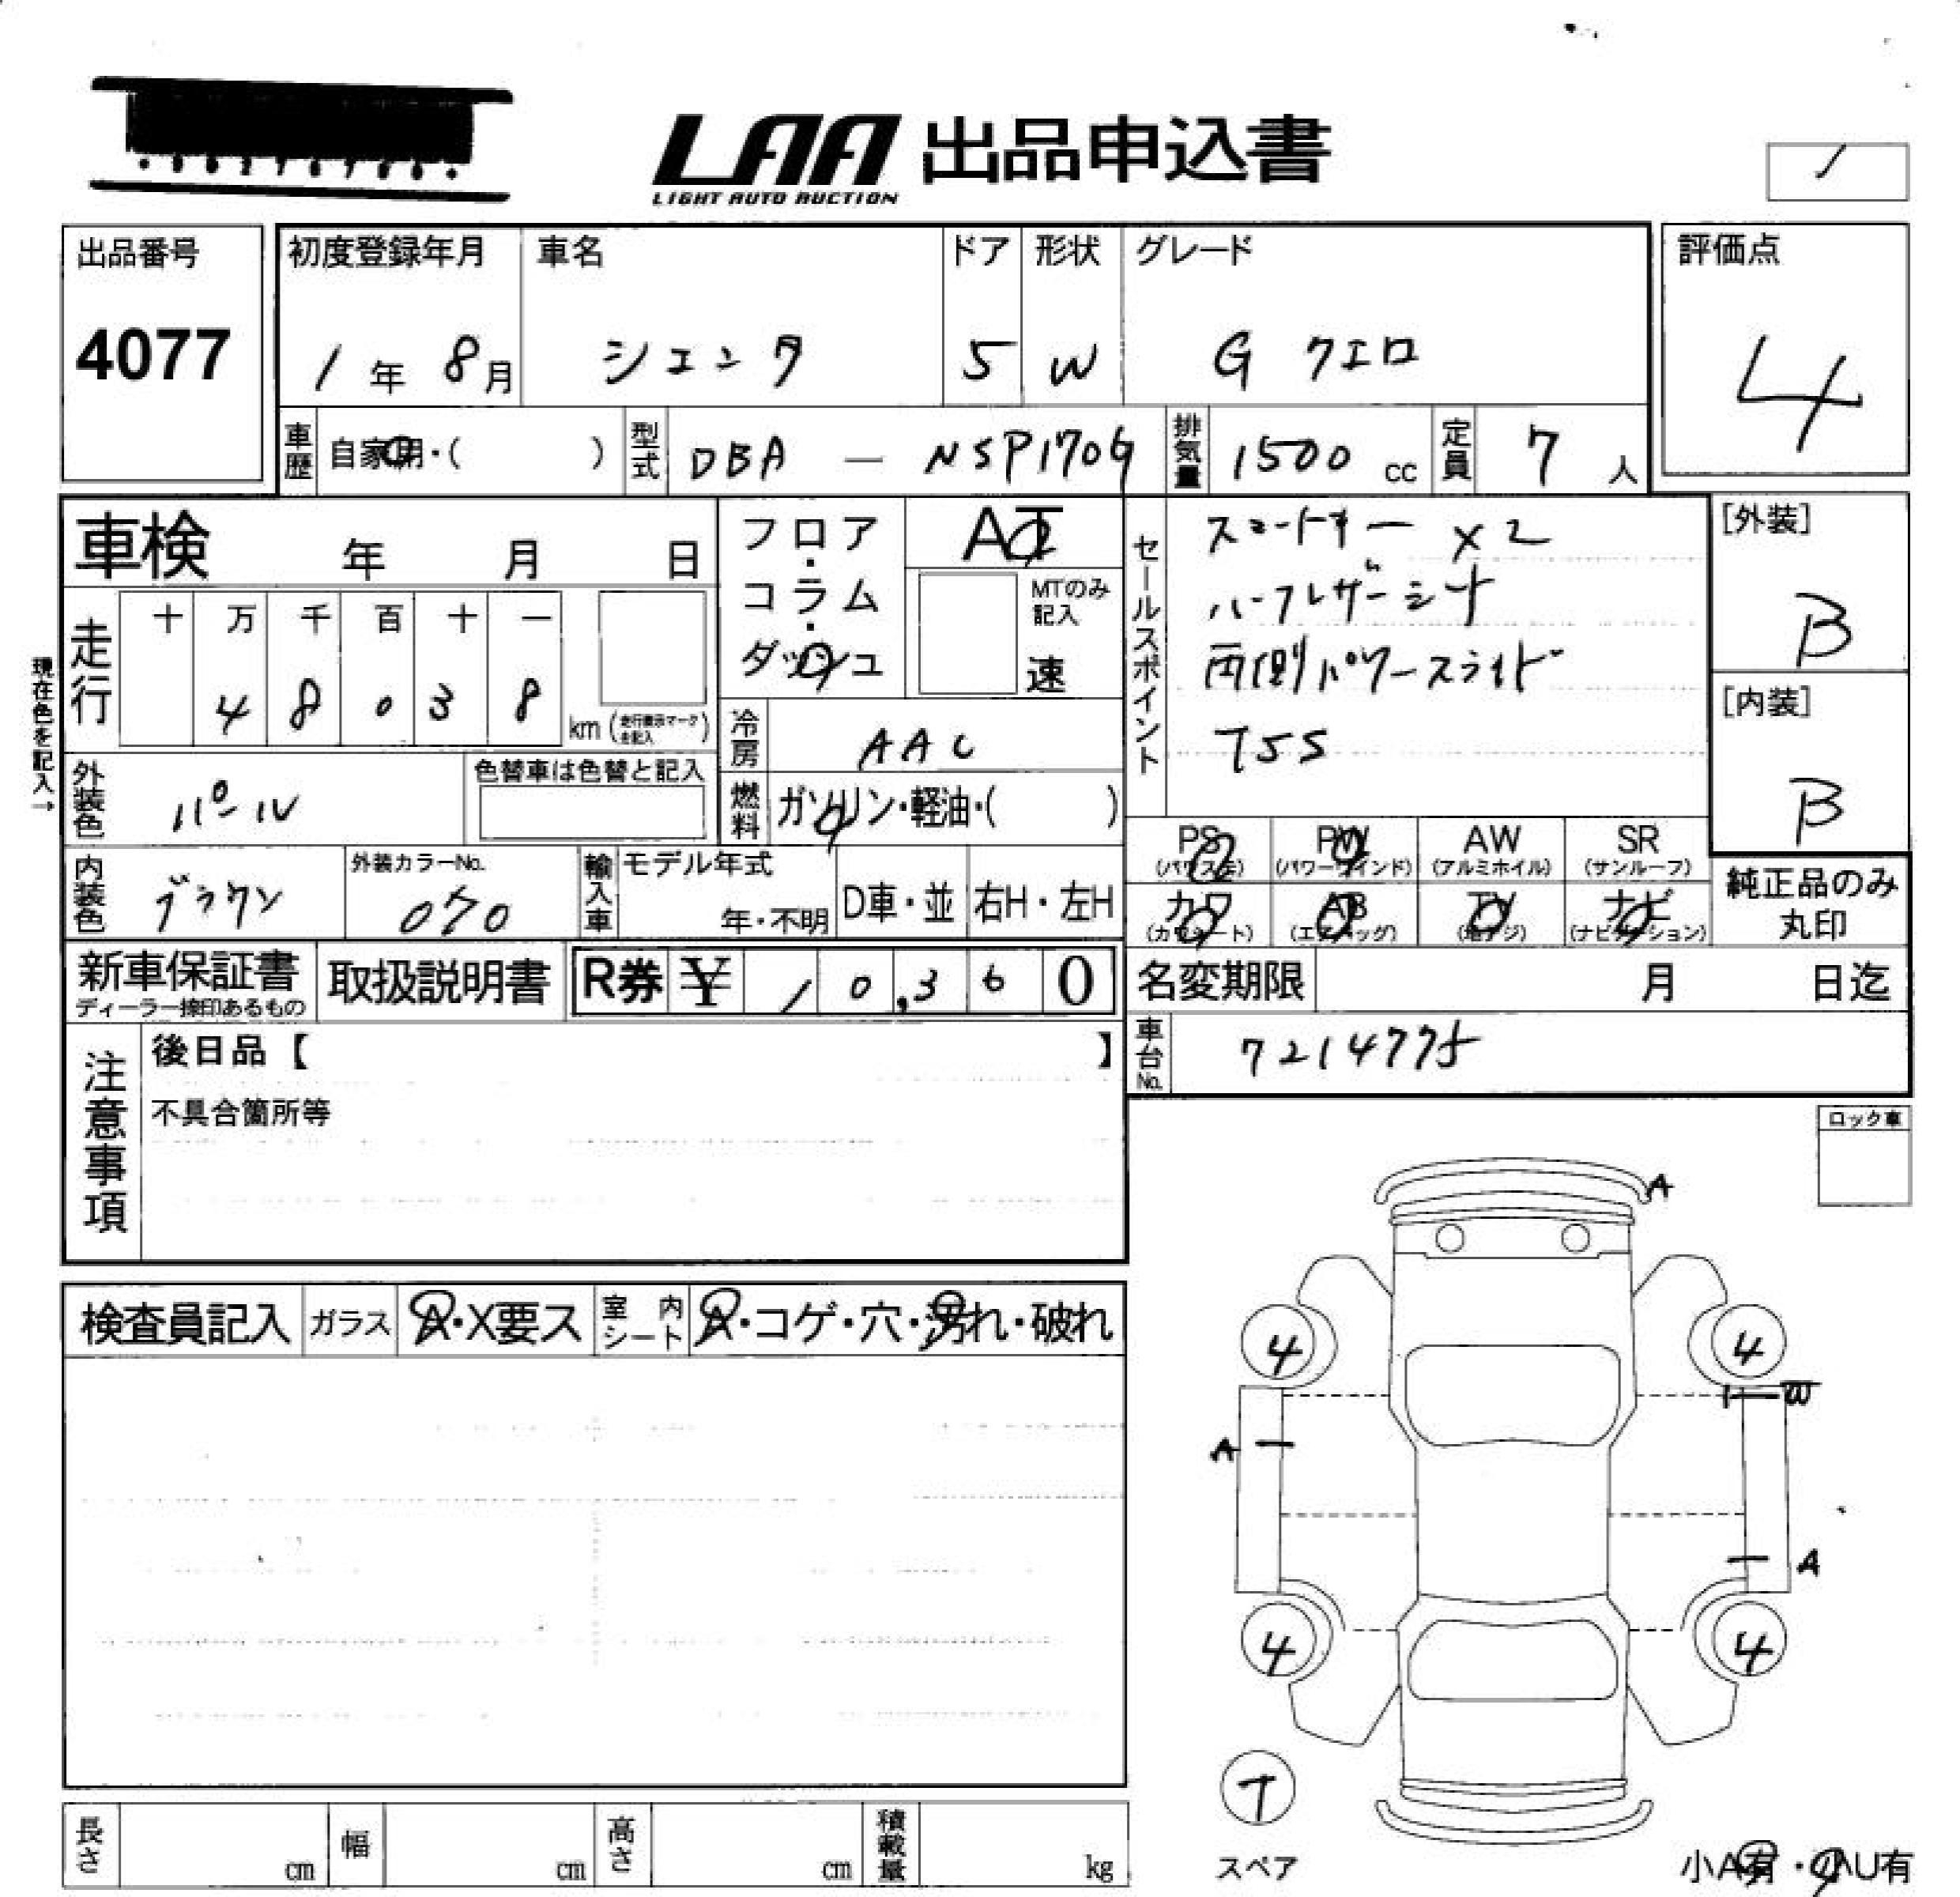 LAA 出品申込書
LIGHT AUTO AUCTION
出品番号
4077
初度登録年月
1年 8月
車名
シエンタ
ドア
5
形状
W
グレード
G クエロ
評価点
4
車歴
自家用・( )
型式
DBA — NSP170G
排気量
1500 cc
定員
7 人
車検 年 月 日
現在色を記入→
走行
十 万 千 百 十 一
4 8 0 3 8
km (走行表示マークを記入)
フロア・コラム・ダッシュ
AT
MTのみ記入
速
冷房
AAC
燃料
ガソリン・軽油・( )
セールスポイント
スマートキー ×2
ハーフレザーシート
両側パワースライド
TSS
[外装]
B
[内装]
B
外装色
パール
色替車は色替と記入
内装色
ブラウン
外装カラーNo.
070
輸入車
モデル年式
年・不明
D車・並
右H・左H
PS (パワステ)
PW (パワーウインド)
AW (アルミホイル)
SR (サンルーフ)
カワ (カワシート)
AB (エアバッグ)
TV (地デジ)
ナビ (ナビゲーション)
純正品のみ丸印
新車保証書
ディーラー捺印あるもの
取扱説明書
R券 ¥ 10,360
名変期限 月 日迄
車台No.
7214775
注意事項
後日品【 】
不具合箇所等
ロック車
検査員記入
ガラス
A・X要ス
室内シート
A・コゲ・穴・汚れ・破れ
A
4 4
W
A
A
4 4
T
スペア
小A有・小U有
長さ cm
幅 cm
高さ cm
積載量 kg